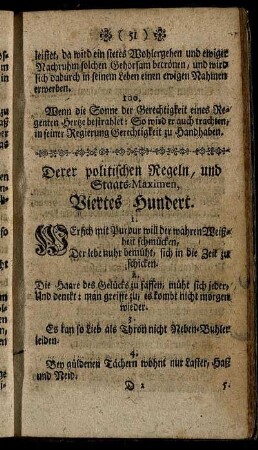 ( 51 )
leistet, da wird ein stetes Wohlergehen und ewiger
Nachruhm solchen Gehorsam becrönen, und wird
sich dadurch in seinem Leben einen ewigen Nahmen
erwerben.
100.
Wenn die Sonne der Gerechtigkeit eines Re-
genten Hertze bestrahlet: So wird er auch trachten,
in seiner Regierung Gerechtigkeit zu Handhaben.
Derer politischen Regeln, und
Staats-Maximen,
Viertes Hundert.
1.
WEr sich mit Purpur will der wahren Weiß-
heit schmücken,
Der lebe nuhr bemüht, sich in die Zeit zu
schicken.
2.
Die Haare des Gelücks zu fassen, müht sich jeder,
Und denckt: man greiffe zu, es kombt nicht morgen
wieder.
3.
Es kan so Lieb als Thron nicht Neben-Buhler
leiden.
4.
Bey güldenen Tächern wohnt nur Laster, Haß
und Neid.
D 2
5.